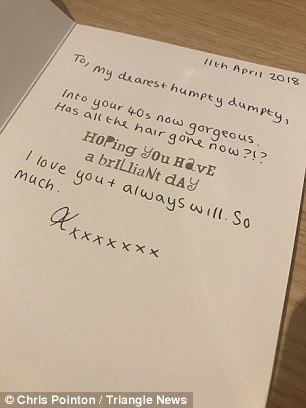 11th April 2018
To, my dearest humpty dumpty,
Into your 40s now gorgeous.
Has all the hair gone now?!?
HOPing yOU HavE
a brILLiaNt dAY
I love you + always will. So
much.
Xxxxxxxx
© Chris Pointon / Triangle News